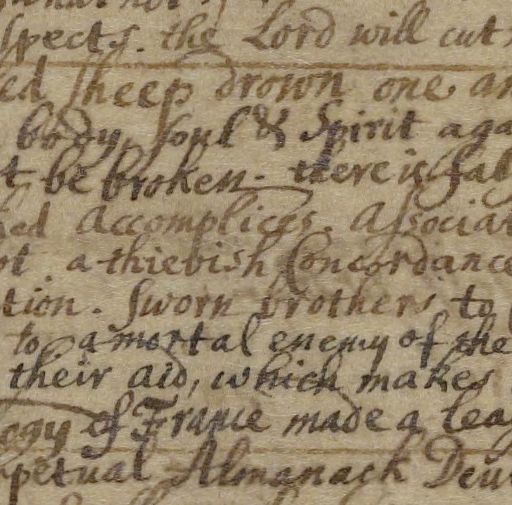 spects. the Lord will cut
ed sheep drown one an
body, soul & Spirit aga
t be broken. there is fal
ked Accomplices. Associat
ot a thievish Concordance
tion. Sworn brothers to
to a mortal enemy of the
their aid, which makes
ogy of France made a leag
petual Almanack Deut